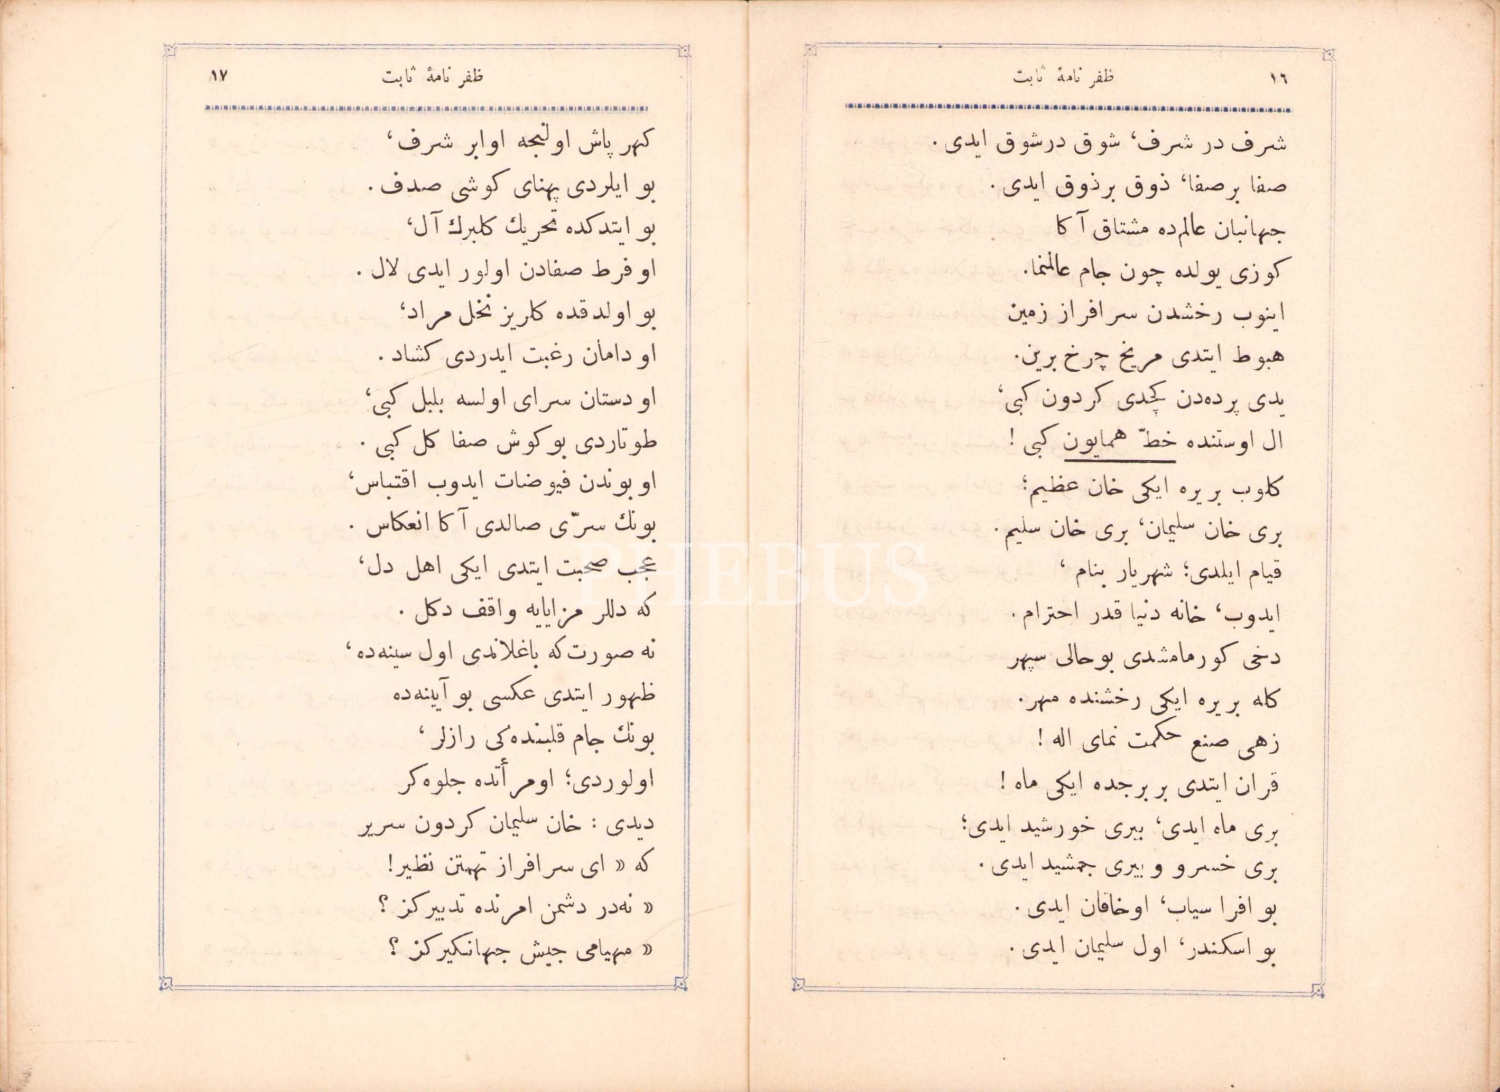 ١٦
ظفر نامهٔ ثابت
شرف در شرف، شوق درشوق ایدی.
صفا برصفا، ذوق برذوق ایدی.
جهانبان عالم‌ده مشتاق آكا
كوزی یولده چون جام عالمنما.
اینوب رخشدن سرافراز زمین
هبوط ایتدی مریخ چرخ برین.
یدی پرده‌دن كچدی كردون كبی،
ال اوستنده خطّ همایون كبی !
كلوب بریره ایكی خان عظیم؛
بری خان سلیمان، بری خان سلیم.
قیام ایلدی؛ شهریار بنام ،
ایدوب، خانه دنیا قدر احترام.
دخی كورمامشدی بوحالی سپهر
كله بریره ایكی رخشنده مهر.
زهی صنع حكمت نمای اله !
قران ایتدی بربرجده ایكی ماه !
بری ماه ایدی، بیری خورشید ایدی؛
بری خسرو و بیری جمشید ایدی.
بو افرا سیاب، اوخاقان ایدی.
بو اسكندر، اول سلیمان ایدی.
١٧
ظفر نامهٔ ثابت
كهر پاش اولنجه اوابر شرف،
بو ایلردی پهنای كوشی صدف.
بو ایتدكده تحریك كلبرك آل،
او فرط صفادن اولور ایدی لال.
بو اولدقده كاریز نخل مراد،
او دامان رغبت ایدردی كشاد.
او دستان سرای اولسه بلبل كبی،
طوتاردی بوكوش صفا كل كبی.
او بوندن فیوضات ایدوب اقتباس،
بونك سرّی صالدی آكا انعكاس.
عجب صحبت ایتدی ایكی اهل دل،
كه دللر مزایایه واقف دكل.
نه صورت‌كه باغلاندی اول سینه‌ده،
ظهور ایتدی عكسی بو آینه‌ده
بونك جام قلبنده‌كی رازلر،
اولوردی؛ اومرأتده جلوه‌كر
دیدی : خان سلیمان كردون سریر
كه « ای سرافراز تهمتن نظیر!
« نه‌در دشمن امرنده تدبیركز ؟
« مهیامی جیش جهانكیركز ؟
PHEBUS